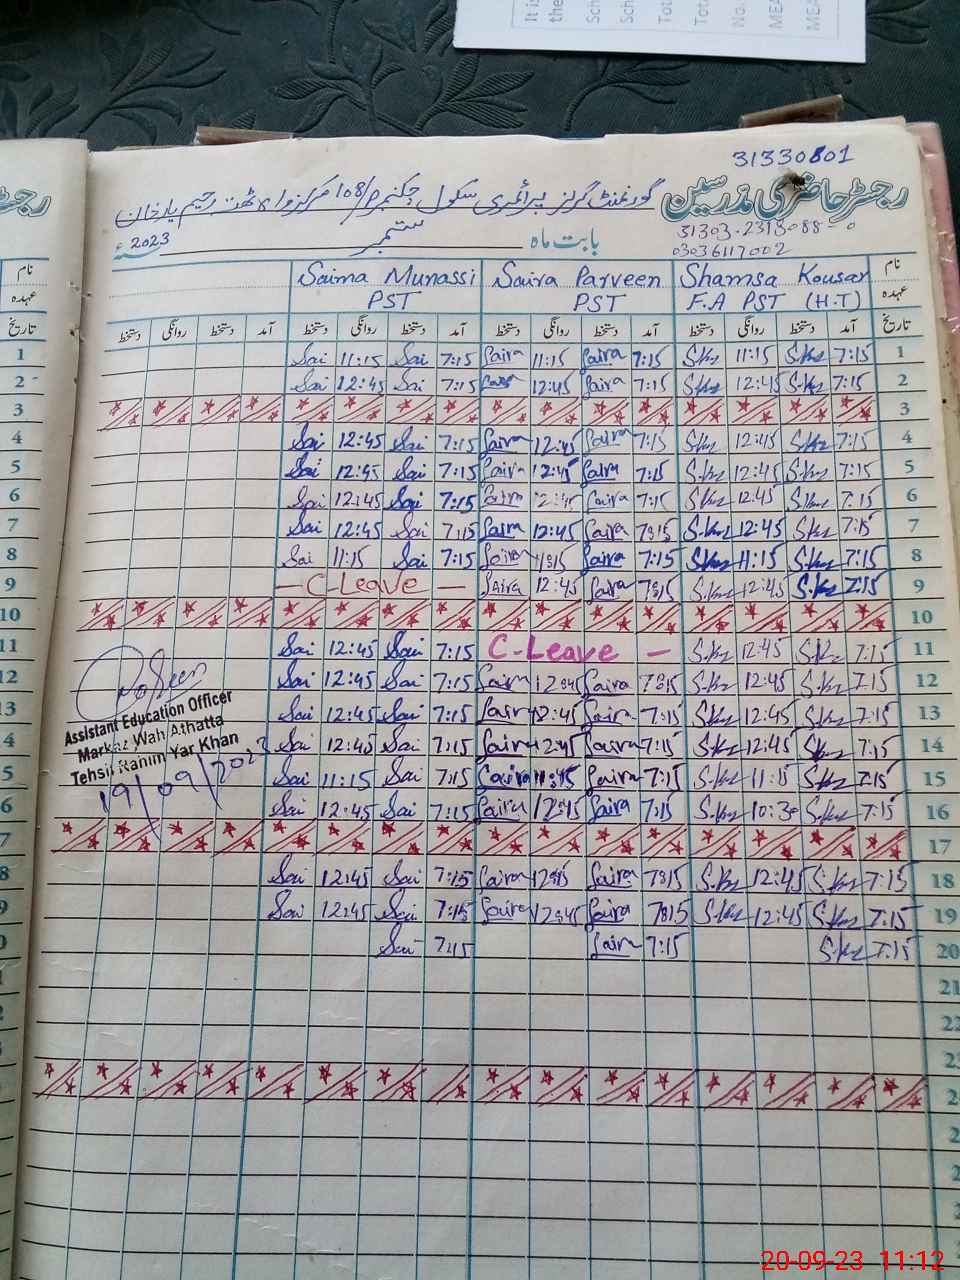 It is
the
Sch
Sch
Tot
Tota
No.
MEA
MEA
31330801
رجسٹر حاضری مدرسین گورنمنٹ گرلز پرائمری سکول چکنمبر 108/P مرکز واہی ٹھٹہ رحیم یار خان
31303-2313088-0
بابت ماہ ستمبر 2023ء
03036117002
نام Shamsa Kousar Saira Parveen Saima Munassi
عہدہ F.A PST (H.T) PST PST
تاریخ آمد دستخط روانگی دستخط آمد دستخط روانگی دستخط آمد دستخط روانگی دستخط آمد دستخط روانگی دستخط
Sai 11:15 Sai 7:15 Saira 11:15 Saira 7:15 S.Ks 11:15 S.Ks 7:15 1
Sai 12:45 Sai 7:15 Saira 12:45 Saira 7:15 S.Ks 12:45 S.Ks 7:15 2
3
Sai 12:45 Sai 7:15 Saira 12:45 Saira 7:15 S.Ks 12:45 S.Ks 7:15 4
Sai 12:45 Sai 7:15 Saira 12:45 Saira 7:15 S.Ks 12:45 S.Ks 7:15 5
Sai 12:45 Sai 7:15 Saira 12:45 Saira 7:15 S.Ks 12:45 S.Ks 7:15 6
Sai 12:45 Sai 7:15 Saira 12:45 Saira 7:15 S.Ks 12:45 S.Ks 7:15 7
Sai 11:15 Sai 7:15 Saira 11:15 Saira 7:15 S.Ks 11:15 S.Ks 7:15 8
— C-Leave — Saira 12:45 Saira 7:15 S.Ks 12:45 S.Ks 7:15 9
10
Sai 12:45 Sai 7:15 C-Leave — S.Ks 12:45 S.Ks 7:15 11
Sai 12:45 Sai 7:15 Saira 12:45 Saira 7:15 S.Ks 12:45 S.Ks 7:15 12
Sai 12:45 Sai 7:15 Saira 12:45 Saira 7:15 S.Ks 12:45 S.Ks 7:15 13
Sai 12:45 Sai 7:15 Saira 12:45 Saira 7:15 S.Ks 12:45 S.Ks 7:15 14
Sai 11:15 Sai 7:15 Saira 11:15 Saira 7:15 S.Ks 11:15 S.Ks 7:15 15
Sai 12:45 Sai 7:15 Saira 12:45 Saira 7:15 S.Ks 10:30 S.Ks 7:15 16
17
Sai 12:45 Sai 7:15 Saira 12:45 Saira 7:15 S.Ks 12:45 S.Ks 7:15 18
Sai 12:45 Sai 7:15 Saira 12:45 Saira 7:15 S.Ks 12:45 S.Ks 7:15 19
Sai 7:15 Saira 7:15 S.Ks 7:15 20
21
22
Assistant Education Officer
Markaz Wahi Athatta
Tehsil Rahim Yar Khan
19/09/2023
20-09-23 11:12